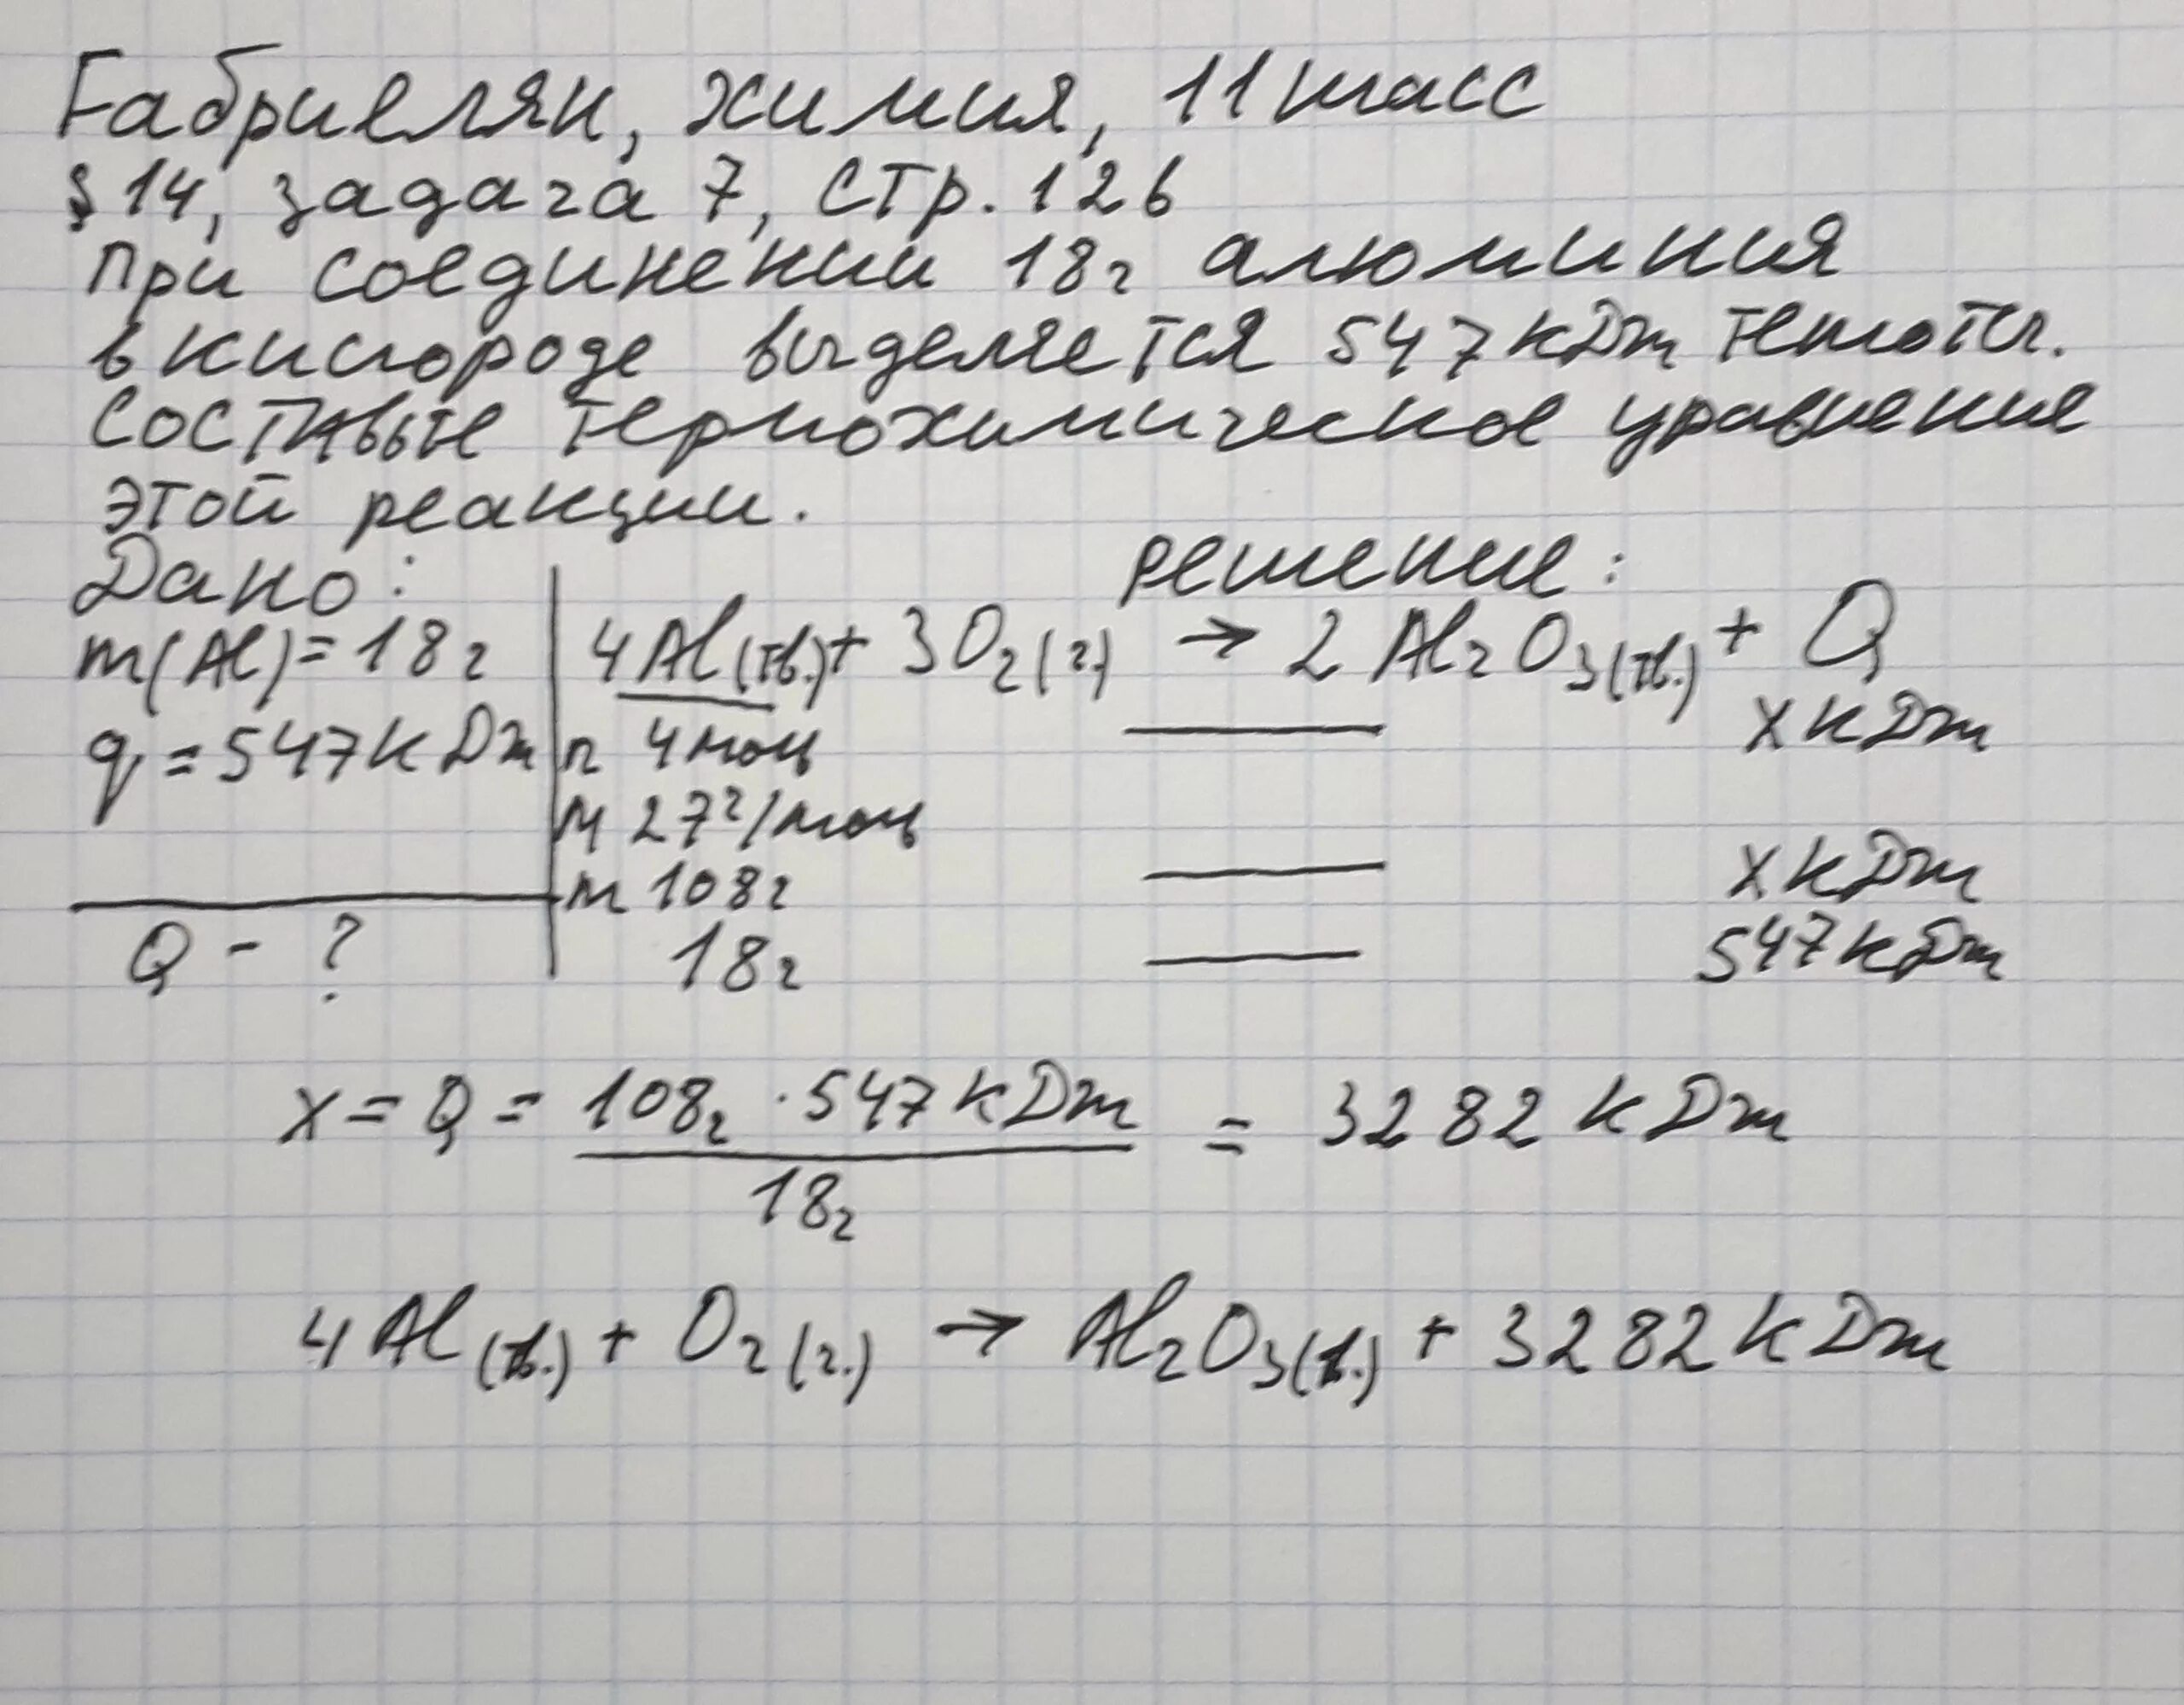 Габриелян, химия, 11 класс
§ 14, задача 7, стр. 126
При соединении 18г алюминия
в кислороде выделяется 547 кДж теплоты.
Составьте термохимическое уравнение
этой реакции.
Дано: Решение:
m(Al) = 18г 4Al(тв.) + 3O2(г.) → 2Al2O3(тв.) + Q
q = 547 кДж n 4моль —— x кДж
M 27г/моль
m 108г —— x кДж
Q - ? 18г —— 547 кДж
x = Q = 108г · 547 кДж / 18г = 3282 кДж
4Al(тв.) + O2(г.) → Al2O3(т.) + 3282 кДж